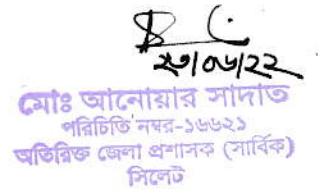 ২৩/০৬/২২
মোঃ আনোয়ার সাদাত
পরিচিতি নম্বর-১৬৬২১
অতিরিক্ত জেলা প্রশাসক (সার্বিক)
সিলেট